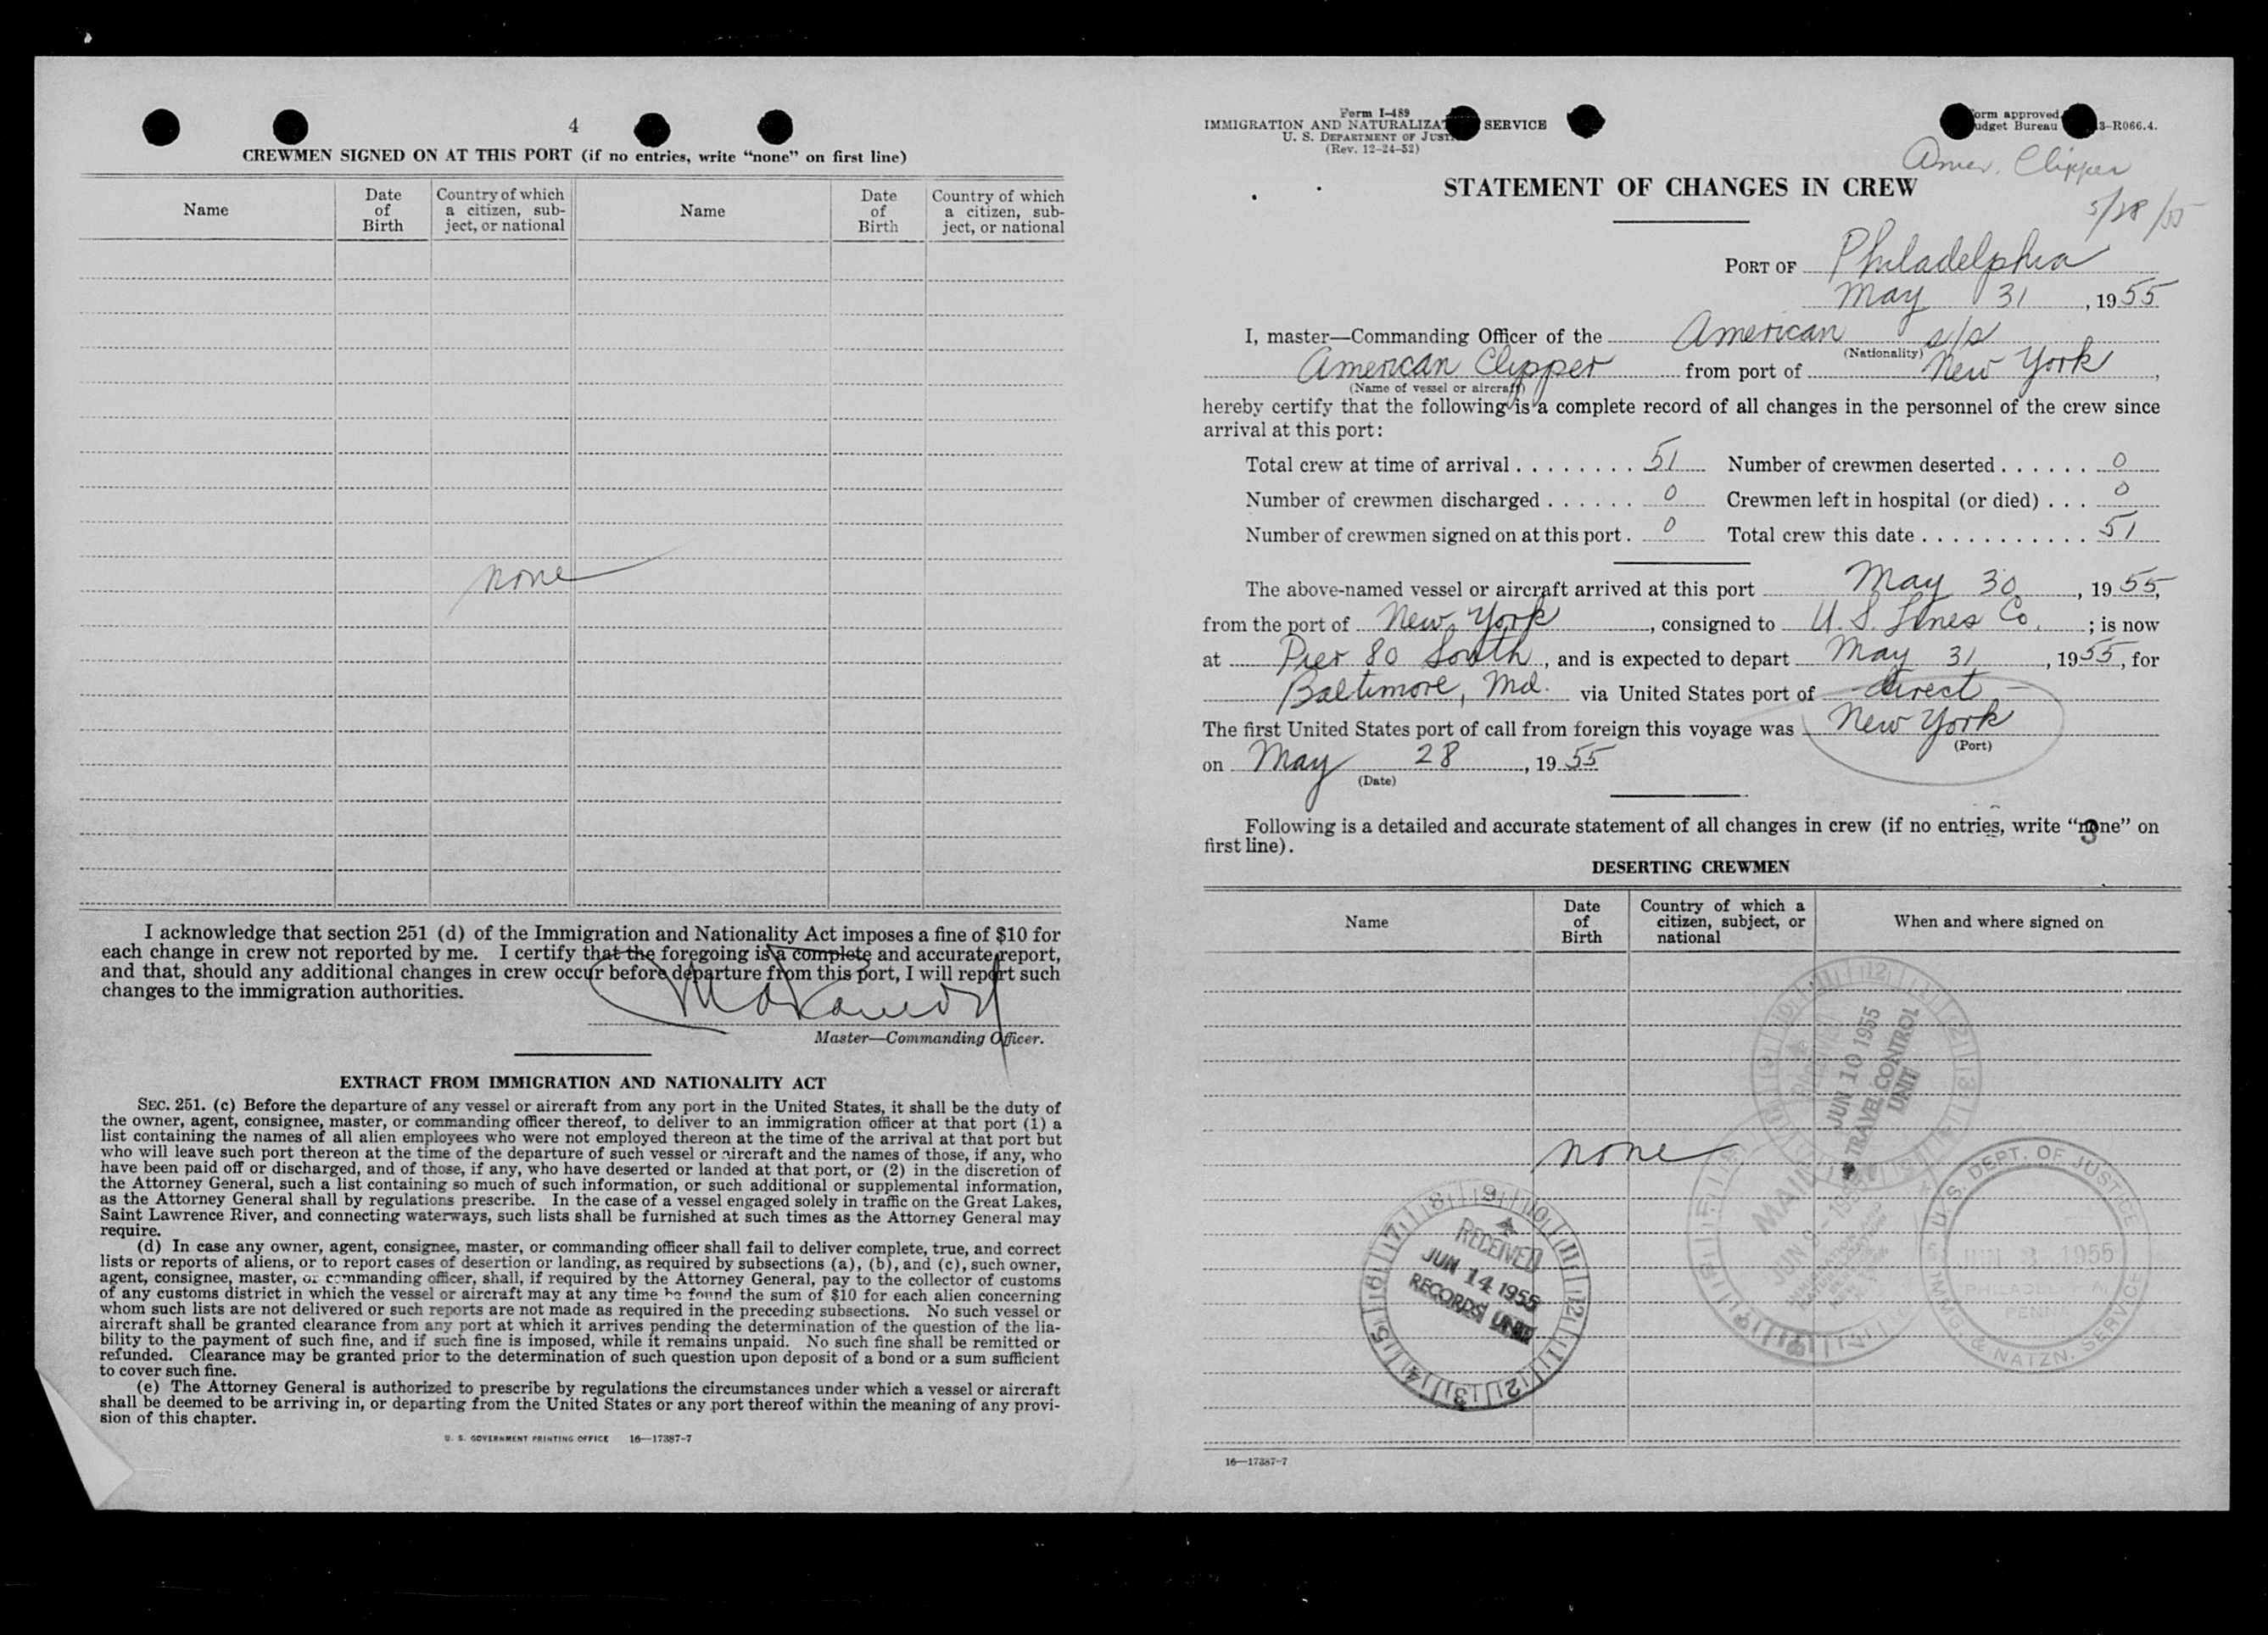 4
CREWMEN SIGNED ON AT THIS PORT (if no entries, write “none” on first line)
Name
Date of Birth
Country of which a citizen, sub-ject, or national
Name
Date of Birth
Country of which a citizen, sub-ject, or national
none
I acknowledge that section 251 (d) of the Immigration and Nationality Act imposes a fine of $10 for
each change in crew not reported by me. I certify that the foregoing is a complete and accurate report,
and that, should any additional changes in crew occur before departure from this port, I will report such
changes to the immigration authorities.
Master—Commanding Officer.
EXTRACT FROM IMMIGRATION AND NATIONALITY ACT
SEC. 251. (c) Before the departure of any vessel or aircraft from any port in the United States, it shall be the duty of
the owner, agent, consignee, master, or commanding officer thereof, to deliver to an immigration officer at that port (1) a
list containing the names of all alien employees who were not employed thereon at the time of the arrival at that port but
who will leave such port thereon at the time of the departure of such vessel or aircraft and the names of those, if any, who
have been paid off or discharged, and of those, if any, who have deserted or landed at that port, or (2) in the discretion of
the Attorney General, such a list containing so much of such information, or such additional or supplemental information,
as the Attorney General shall by regulations prescribe. In the case of a vessel engaged solely in traffic on the Great Lakes,
Saint Lawrence River, and connecting waterways, such lists shall be furnished at such times as the Attorney General may
require.
(d) In case any owner, agent, consignee, master, or commanding officer shall fail to deliver complete, true, and correct
lists or reports of aliens, or to report cases of desertion or landing, as required by subsections (a), (b), and (c), such owner,
agent, consignee, master, or commanding officer, shall, if required by the Attorney General, pay to the collector of customs
of any customs district in which the vessel or aircraft may at any time be found the sum of $10 for each alien concerning
whom such lists are not delivered or such reports are not made as required in the preceding subsections. No such vessel or
aircraft shall be granted clearance from any port at which it arrives pending the determination of the question of the lia-
bility to the payment of such fine, and if such fine is imposed, while it remains unpaid. No such fine shall be remitted or
refunded. Clearance may be granted prior to the determination of such question upon deposit of a bond or a sum sufficient
to cover such fine.
(e) The Attorney General is authorized to prescribe by regulations the circumstances under which a vessel or aircraft
shall be deemed to be arriving in, or departing from the United States or any port thereof within the meaning of any provi-
sion of this chapter.
U. S. GOVERNMENT PRINTING OFFICE 16—17387-7
Form I-489
IMMIGRATION AND NATURALIZAT SERVICE
U. S. DEPARTMENT OF JUST
(Rev. 12-24-52)
orm approved.
udget Bureau 3-R066.4.
Amer. Clipper
5/28/55
STATEMENT OF CHANGES IN CREW
PORT OF Philadelphia
May 31, 1955
I, master—Commanding Officer of the American s/s
(Nationality)
American Clipper from port of New York,
(Name of vessel or aircraft)
hereby certify that the following is a complete record of all changes in the personnel of the crew since
arrival at this port:
Total crew at time of arrival . . . . . . . . 51 Number of crewmen deserted . . . . . . 0
Number of crewmen discharged . . . . . . 0 Crewmen left in hospital (or died) . . . 0
Number of crewmen signed on at this port . 0 Total crew this date . . . . . . . . . . . 51
The above-named vessel or aircraft arrived at this port May 30, 1955,
from the port of New York, consigned to U. S. Lines Co.; is now
at Pier 80 South, and is expected to depart May 31, 1955, for
Baltimore, Md. via United States port of - direct -
The first United States port of call from foreign this voyage was New York
(Port)
on May 28, 1955
(Date)
Following is a detailed and accurate statement of all changes in crew (if no entries, write “none” on
first line).
3
DESERTING CREWMEN
Name
Date of Birth
Country of which a citizen, subject, or national
When and where signed on
none
RECEIVED
JUN 10 1955
TRAVEL CONTROL
UNIT
MAIL
JUN 9 - 1955
U. S. DEPT. OF JUSTICE
JUN 3 - 1955
PENN
IMM. & NATZN. SERVICE
RECEIVED
JUN 14 1955
RECORDS UNIT
16—17387-7